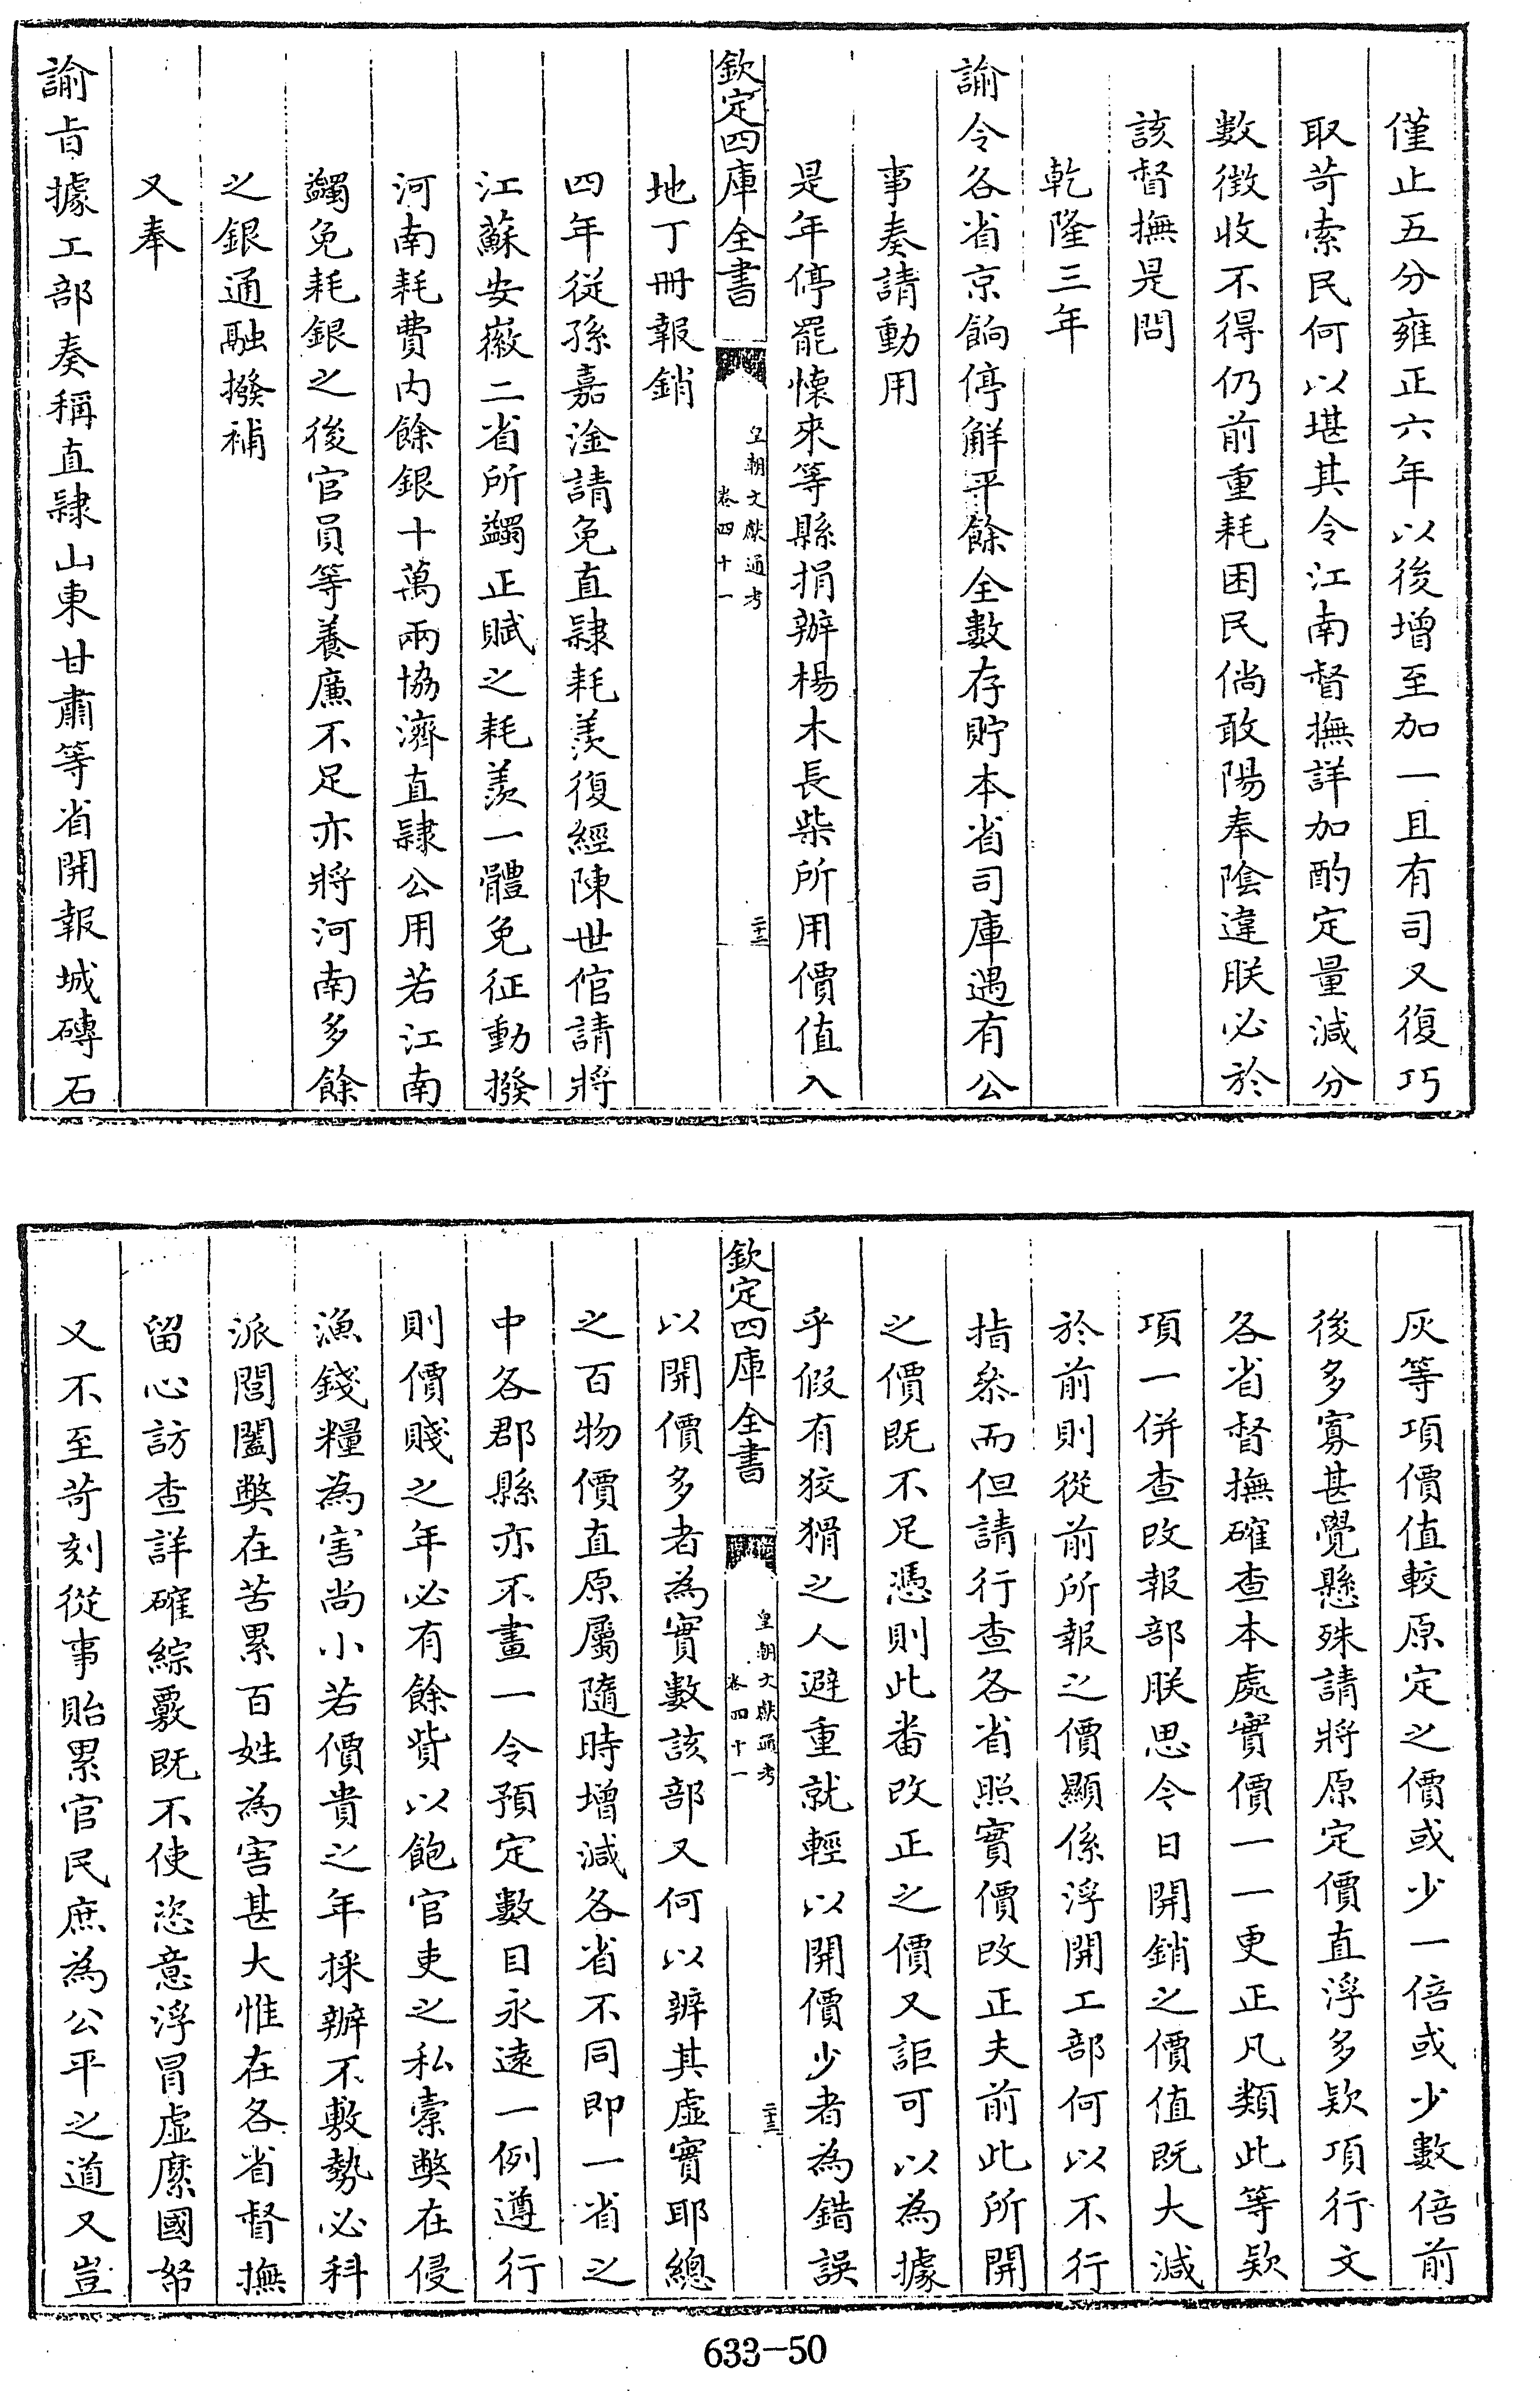 僅止五分雍正六年以後增至加一且有司又復巧
取苛索民何以堪其令江南督撫詳加酌定量減分
數徴收不得仍前重耗困民倘敢陽奉隂違朕必於
該督撫是問
乾隆三年
諭令各省京餉停觧平餘全數存貯本省司庫遇有公
事奏請動用
是年停罷懐來等縣捐辦楊木長柴所用價值入
欽定四庫全書
皇朝文獻通考
卷四十一
二十三
地丁冊報銷
四年從孫嘉淦請免直隸耗羨復經陳世倌請將
江蘇安徽二省所蠲正賦之耗羨一體免征動撥
河南耗費内餘銀十萬兩協濟直隸公用若江南
蠲免耗銀之後官員等養廉不足亦將河南多餘
之銀通融撥補
又奉
諭旨據工部奏稱直隸山東甘肅等省開報城磚石
灰等項價值較原定之價或少一倍或少數倍前
後多寡甚覺懸殊請將原定價直浮多欵項行文
各省督撫確查本處實價一一更正凡類此等欵
項一併查改報部朕思今日開銷之價值既大減
於前則從前所報之價顯係浮開工部何以不行
指叅而但請行查各省照實價改正夫前此所開
之價既不足憑則此番改正之價又詎可以為據
乎假有狡猾之人避重就輕以開價少者為錯誤
欽定四庫全書
皇朝文獻通考
卷四十一
二十三
以開價多者為實數該部又何以辨其虛實耶總
之百物價直原屬隨時增減各省不同即一省之
中各郡縣亦不畫一今預定數目永遠一例遵行
則價賤之年必有餘貲以飽官吏之私槖弊在侵
漁錢糧為害尚小若價貴之年採辦不敷勢必科
派閭闔弊在苦累百姓為害甚大惟在各省督撫
留心訪查詳確綜覈既不使恣意浮冒虛縻國帑
又不至苛刻從事貽累官民庶為公平之道又豈
633-50